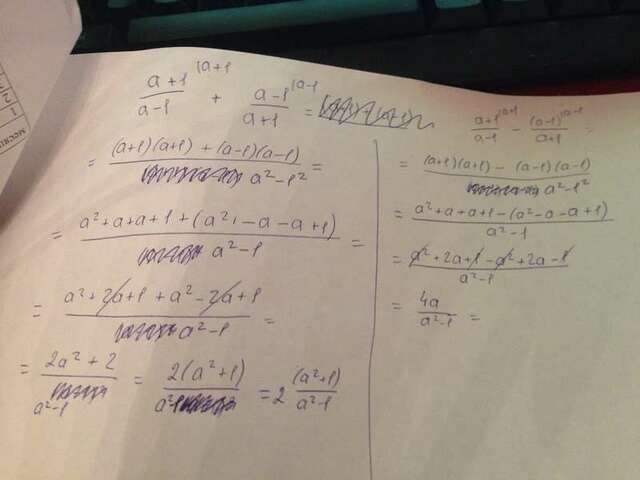 (a+1)/(a-1) |a+1 + (a-1)/(a+1) |a-1 =
= ((a+1)(a+1) + (a-1)(a-1))/(a²-1²) =
= (a²+a+a+1+(a²-a-a+1))/(a²-1) =
= (a²+2a+1+a²-2a+1)/(a²-1) =
= (2a²+2)/(a²-1) = (2(a²+1))/(a²-1) = 2 (a²+1)/(a²-1)
(a+1)/(a-1) |a+1 - (a-1)/(a+1) |a-1 =
= ((a+1)(a+1) - (a-1)(a-1))/(a²-1²)
= (a²+a+a+1-(a²-a-a+1))/(a²-1)
= (a²+2a+1-a²+2a-1)/(a²-1)
= 4a/(a²-1) =